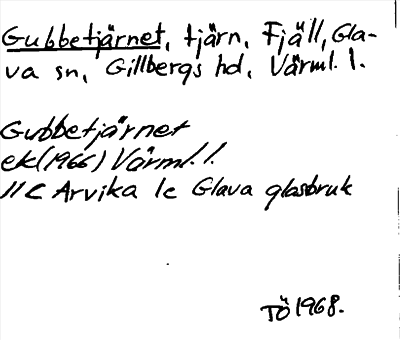 Gubbetjärnet, tjärn, Fjäll, Gla-
va sn, Gillbergs hd, Värml. l.
Gubbetjärnet
ek(1966) Värml. l.
11C Arvika 1c Glava glasbruk
TÖ 1968.